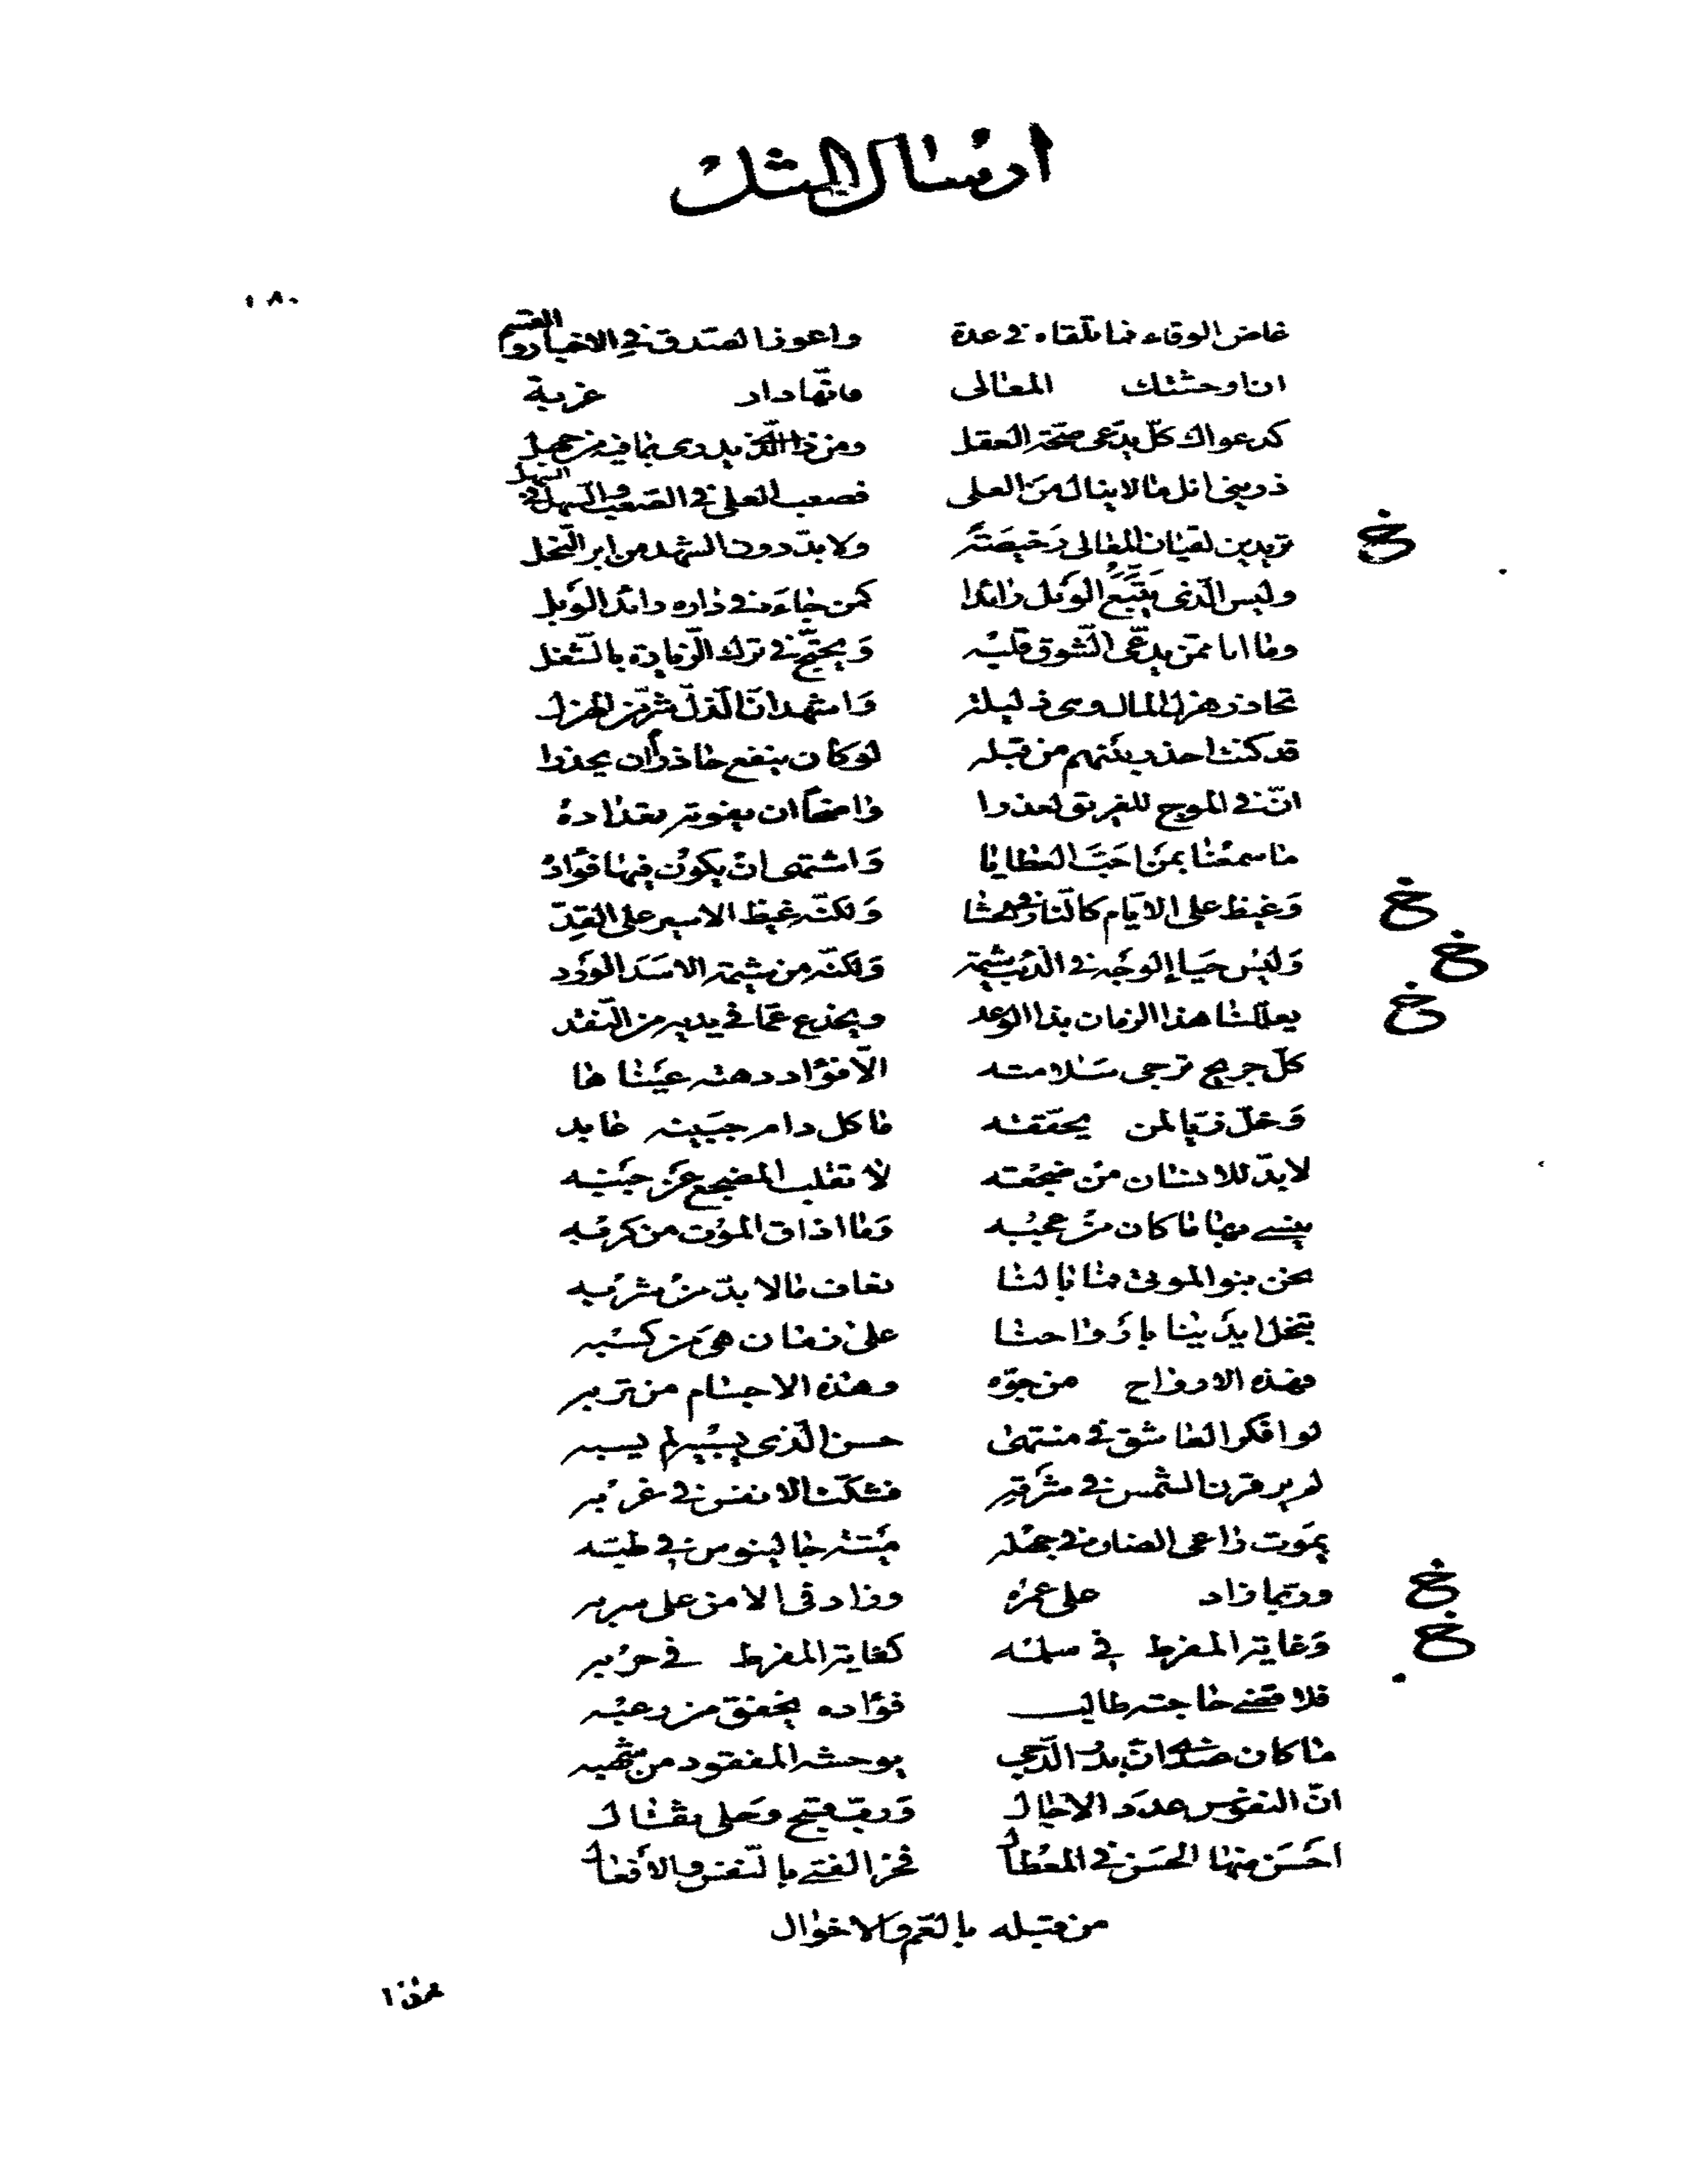 ارسال المثل
١٨٠
غاض الوفاء فما تلقاه في عدة واعوز الصدق في الاخبار والقسم
ان اوحشتك المعالي فانها دار غربة
كدعواك كلّ يدّعى صحّة العقل ومن ذا الّذي يدرى بما فيه من جهل
ذريني انل ما لا ينال من العلى فصعب العلى في الصعب والسهل في السهل
تريدين لقيان المعالى رخيصَتً ولا بدّ دون الشهد من ابر النّحل
خ
وليس الّذى يتّبّع الوَبل رائدا كمن جاءَه في داره رائد الوَبل
وما انا ممّن يدّعى الشّوق قلبُه وَيحتجّ في ترك الزّيارة بالشّغل
تحاذر هزل المال وهي ذليلة وَاشهد انّ الذلّ شرّ من الهزل
قد كنت احذر بينهم من قبله لو كان ينفع حاذرًا ان يحذرا
انّ في الموج للغريق لعذرا واضحًا ان يفوته تعداده
ما سمعْنا بمن احَبّ العطايا وَاشتهى انْ يكوُن فيها فؤادُ
وَغيظ على الايّام كالنّار في الحشا وَلكنّه غيظ الاسير على القِدّ
خ
وَليْس حيَاء الوجْه في الذئب شيمة وَلكنّه من شيمة الاسَد الورْد
خ
يعلّلنا هذا الزمان بذا الوعد ويخدع عمّا في يديه من النّقد
خ
كلّ جريح ترجى سَلامته الّا فؤاد دهته عيْناها
وَخلّ زيّا لمن يحقّقه ما كل دام جبَينه عابد
لا بدّ للانسان من ضجعْته لا تقلب المضجع عَن جنْبه
ينسى بها ما كان من عجْبه وَما اذاق الموْت من كرْبه
نحن بنو الموتى فما بالنا نعاف ما لا بدّ من شرْبه
تبخل ايديْنا بارْواحنا على زمان هىَ من كسْبه
فهذه الارواح من جوّه وهذه الاجسام من تربه
لو افكر العاشق في منتهى حسن الّذى يسْبيه لم يسبه
لم ير قرن الشّمس في شرْقه فشكّت الانفس في غربه
يموَت راعى الضان في جهْله مَيْتة جالينوس في طبّه
وربّما زاد على عمرْه وزاد في الامن على سربه
خ
وَغاية المفرط في سلمْه كغاية المفرط في حرْبه
خ
فلا قضى حاجته طالب فؤاده يخفق من رعبْه
ما كان عندى انّ بدْر الدّجى يوحشه المفقود من شهْبه
انّ النفوْس عدَد الاجال وَربّ قبْح وحَلى ثقال
احَسَن منها الحسْن في المعْطال فخْر الفتى بالنّفس والأفعال
من قبله بالعم والاخوال